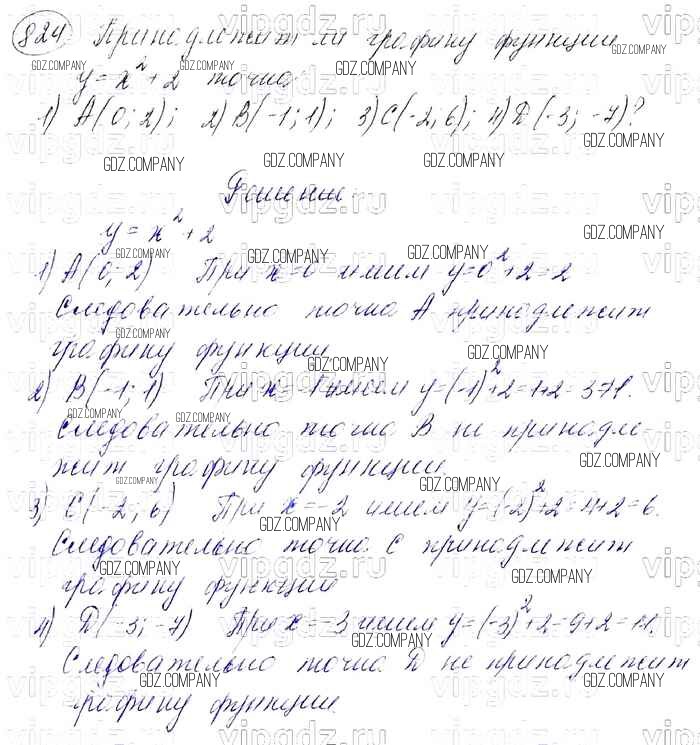 824 Принадлежит ли графику функции
y = x² + 2 точка:
1) A(0; 2); 2) B(-1; 1); 3) C(-2; 6); 4) D(-3; -7)?
Решение.
y = x² + 2
1) A(0; 2) При x = 0 имеем y = 0² + 2 = 2
Следовательно точка A принадлежит
графику функции
2) B(-1; 1) При x = -1 имеем y = (-1)² + 2 = 1 + 2 = 3 ≠ 1.
Следовательно точка B не принадле-
жит графику функции.
3) C(-2; 6) При x = -2 имеем y = (-2)² + 2 = 4 + 2 = 6.
Следовательно точка C принадлежит
графику функции
4) D(-3; -7) При x = -3 имеем y = (-3)² + 2 = 9 + 2 = 11.
Следовательно точка D не принадлежит
графику функции.
vipgdz.ru
GDZ.COMPANY